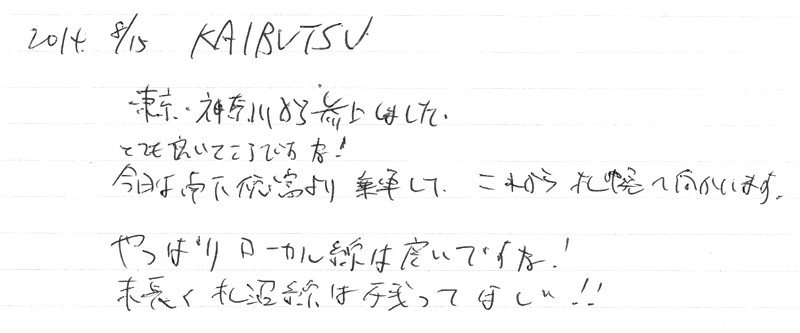 2014. 8/15 KAIBUTSU
東京・神奈川から参上しました。
とても良いところですな!
今日は南下徳富より乗車して、これから札幌へ向かいます。
やっぱりローカル線は良いですな!
末長く札沼線は残ってほしい!!